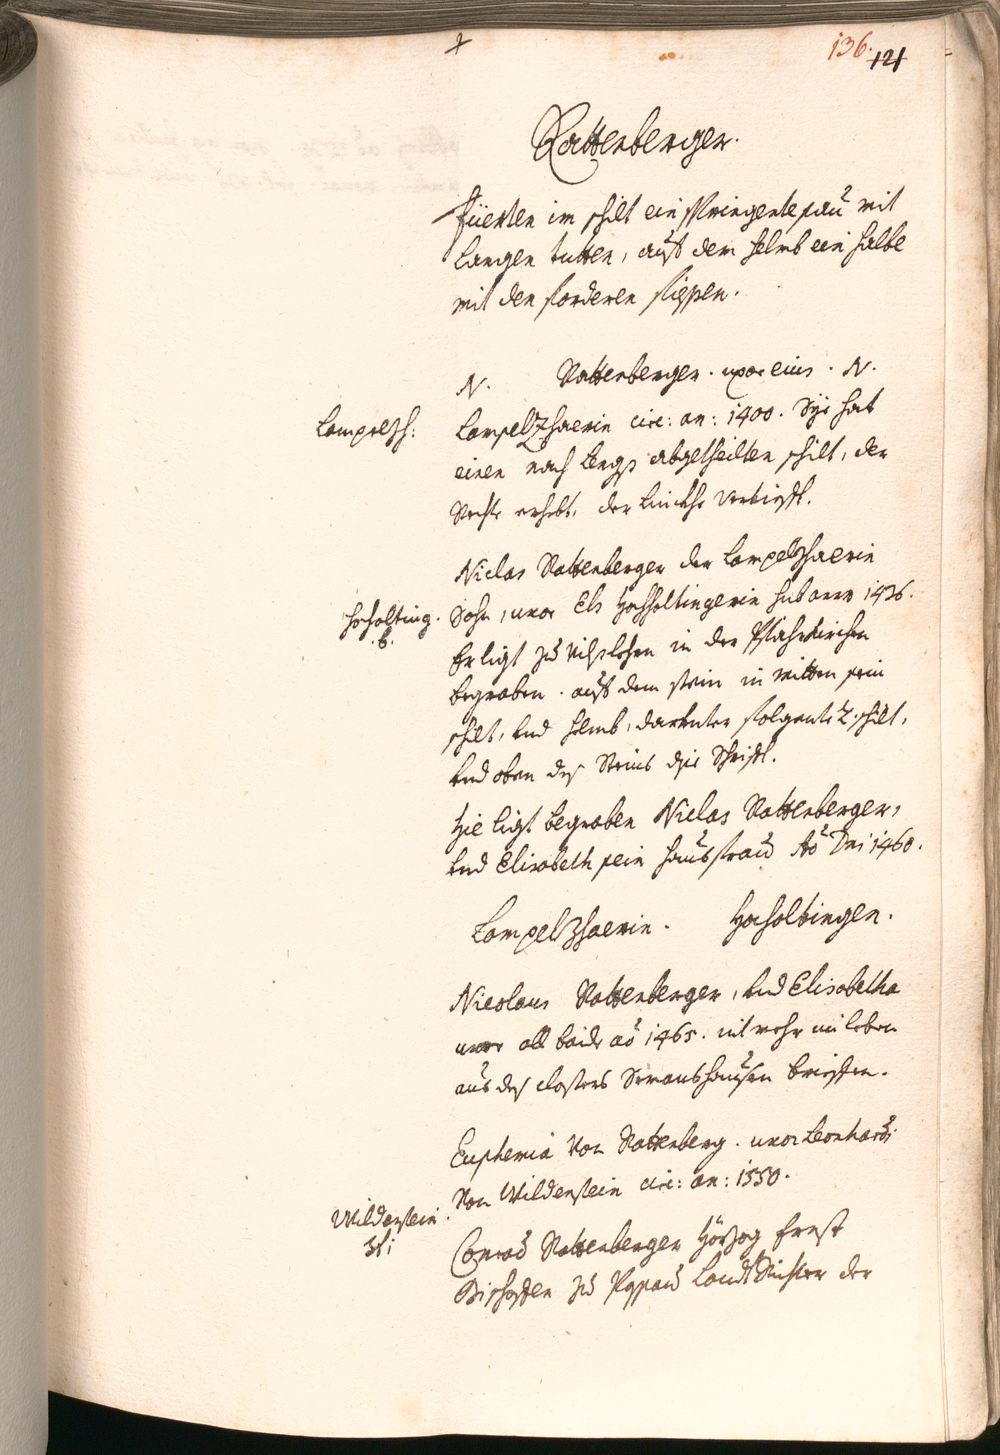 136. 121
Rattenberger.
füerten im schilt ein springente sau mit
langen tutten, auf dem helmb ein halbe
mit den forderen fiessen.
N. Rattenberger. uxor eius. N.
Lampelzh:
Lampelzhaerin circ: an: 1400. Dise hat
einen nach lengs abgetheilten schilt, der
Rechte erhebt, der linckhe vertiefft.
Niclas Rattenberger der Lampelzhaerin
Sohn, uxor Els Hochholtingerin hub anno 1436.
Hoholting.
.C.
Er ligt zu Vilslehrn in der Pfahrkirchen
begraben. auf dem stein in mitten sein
schilt, und helmb, darunter folgente 2. schilt,
und oben des Steins die Schrifft.
Hie ligt begraben Niclas Rattenberger,
und Elisabeth sein hausfrau Ao Dni 1460.
Lampelzhaerin. Hocholtingen.
Nicolaus Rattenberger, und Elisabetha
uxor all baide ao 1465. nit mehr im leben
aus des closters Sermanshausen brieffen.
Euphemia von Rattenberg. uxor Leonhardi
von Wildenstein circ: an: 1550.
Wildenstein.
Conrad Rattenberger Hörzog Ernst
Bischoffen zu Passau LandtRichter der